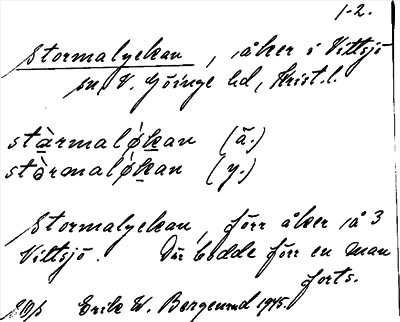 1-2.
Stormalyckan, åker i Vittsjö
sn, V. Göinge hd, Krist. l.
stàrmalókan (ä.)
stòrmalókan (y.)
Stormalyckan, förr åker å 3
Vittsjö. Där bodde förr en man
forts.
Erik W. Bergenrud 1945.